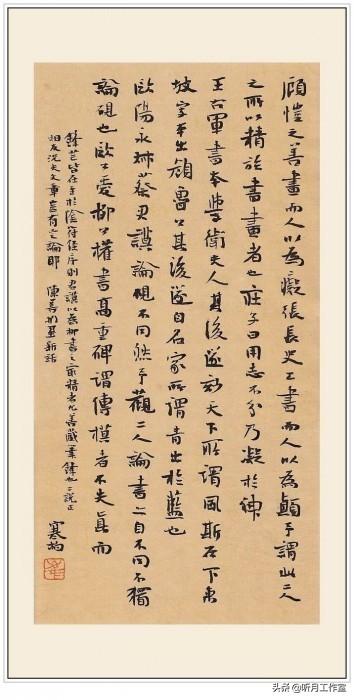 顧愷之善畫而人以為癡張長史工書而人以為顛予謂此二人
之所以精於書畫者也莊子曰用志不分乃凝於神
王右軍書本學衛夫人其後遂妙天下所謂風斯在下東
坡字本出顏魯公其後遂自名家所謂青出於藍也
歐陽永叔蔡君謨論硯不同然予觀二人論書亦自不同不獨
論硯也歐公愛柳公權書高重碑謂傳模者不失真而
鋒芒皆在至於陰符經序則君謨以為柳書之最精者尤善藏筆鋒也二說正
相反況夫文章豈有定論耶 陳善捫虱新話
頭条 @听月工作室